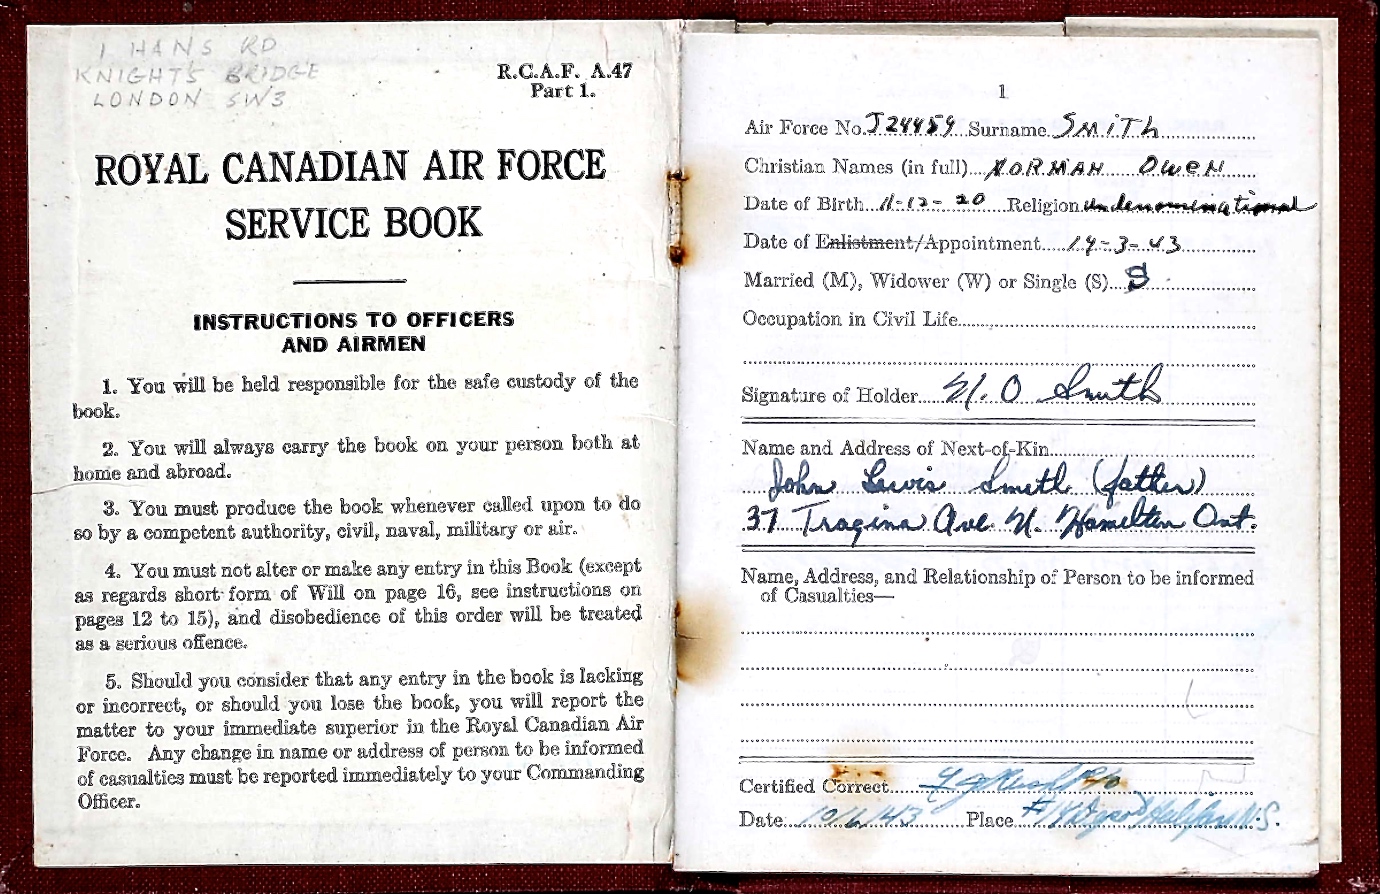 1 HANS RD
KNIGHT'S BRIDGE
LONDON SW3
R.C.A.F. A.47
Part 1.
ROYAL CANADIAN AIR FORCE
SERVICE BOOK
INSTRUCTIONS TO OFFICERS
AND AIRMEN
1. You will be held responsible for the safe custody of the
book.
2. You will always carry the book on your person both at
home and abroad.
3. You must produce the book whenever called upon to do
so by a competent authority, civil, naval, military or air.
4. You must not alter or make any entry in this Book (except
as regards short form of Will on page 16, see instructions on
pages 12 to 15), and disobedience of this order will be treated
as a serious offence.
5. Should you consider that any entry in the book is lacking
or incorrect, or should you lose the book, you will report the
matter to your immediate superior in the Royal Canadian Air
Force. Any change in name or address of person to be informed
of casualties must be reported immediately to your Commanding
Officer.
1
Air Force No. J24459 Surname SMITH
Christian Names (in full) NORMAN OWEN
Date of Birth 11-12-20 Religion undenominational
Date of Enlistment/Appointment 19-3-43
Married (M), Widower (W) or Single (S) S
Occupation in Civil Life
Signature of Holder N. O Smith
Name and Address of Next-of-Kin
John Lewis Smith (father)
37 Tragina Ave. N. Hamilton Ont.
Name, Address, and Relationship of Person to be informed
of Casualties—
Certified Correct F/O
Date 10/6/43 Place Halifax N.S.